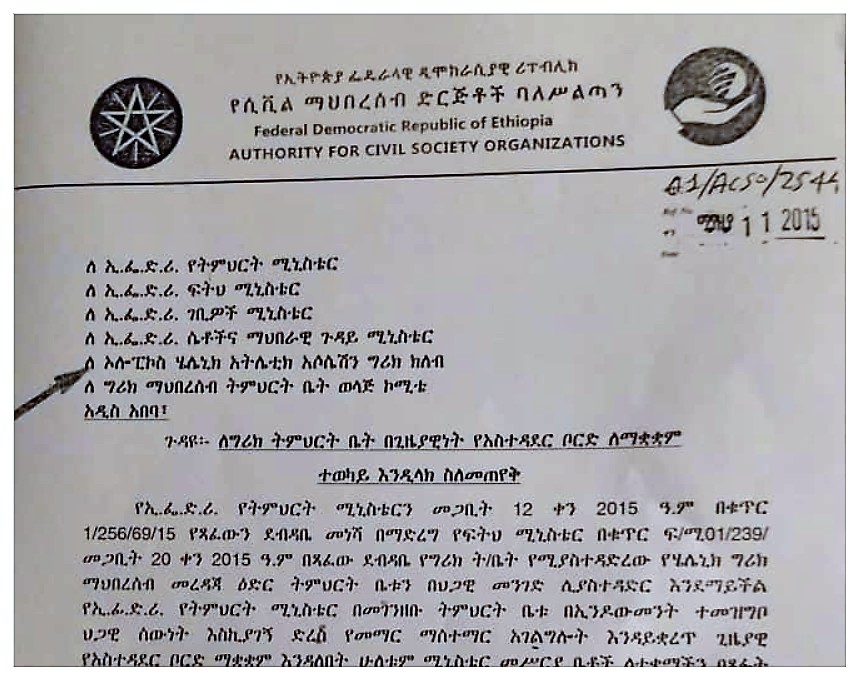 የኢትዮጵያ ፌዴራላዊ ዲሞክራሲያዊ ሪፐብሊክ
የሲቪል ማህበረሰብ ድርጅቶች ባለሥልጣን
Federal Democratic Republic of Ethiopia
AUTHORITY FOR CIVIL SOCIETY ORGANIZATIONS
01/ACSO/2544
11 2015
ለ ኢ.ፌ.ድ.ሪ. የትምህርት ሚኒስቴር
ለ ኢ.ፌ.ድ.ሪ. ፍትህ ሚኒስቴር
ለ ኢ.ፌ.ድ.ሪ. ገቢዎች ሚኒስቴር
ለ ኢ.ፌ.ድ.ሪ. ሴቶችና ማህበራዊ ጉዳይ ሚኒስቴር
ለ ኦሎ-ፒኮስ ሄሌኒክ አትሌቲክ አሶሴሽን ግሪክ ክለብ
ለ ግሪክ ማህበረሰብ ትምህርት ቤት ወላጅ ኮሚቴ
አዲስ አበባ፣
ጉዳዩ፡- ለግሪክ ትምህርት ቤት በጊዜያዊነት የአስተዳደር ቦርድ ለማቋቋም
ተወካይ እንዲላክ ስለመጠየቅ
የኢ.ፌ.ድ.ሪ. የትምህርት ሚኒስቴርን መጋቢት 12 ቀን 2015 ዓ.ም በቁጥር
1/256/69/15 የጻፈውን ደብዳቤ መነሻ በማድረግ የፍትህ ሚኒስቴር በቁጥር ፍ/ሚ01/239/
መጋቢት 20 ቀን 2015 ዓ.ም በጻፈው ደብዳቤ የግሪክ ት/ቤት የሚያስተዳድረው የሄሌኒክ ግሪክ
ማህበረሰብ መረዳጃ ዕድር ትምህርት ቤቱን በህጋዊ መንገድ ሊያስተዳድር እንደማይችል
የኢ.ፌ.ድ.ሪ. የትምህርት ሚኒስቴር በመገንዘቡ ትምህርት ቤቱ በኢንዶውመንት ተመዝግቦ
ህጋዊ ሰውነት እስኪያገኝ ድረስ የመማር ማስተማር አገልግሎት እንዳይቋረጥ ጊዜያዊ
የአስተዳደር ቦርድ ማቋቋም እንዳለበት ሁለቱም ሚኒስቴር መሥርያ ቤቶች